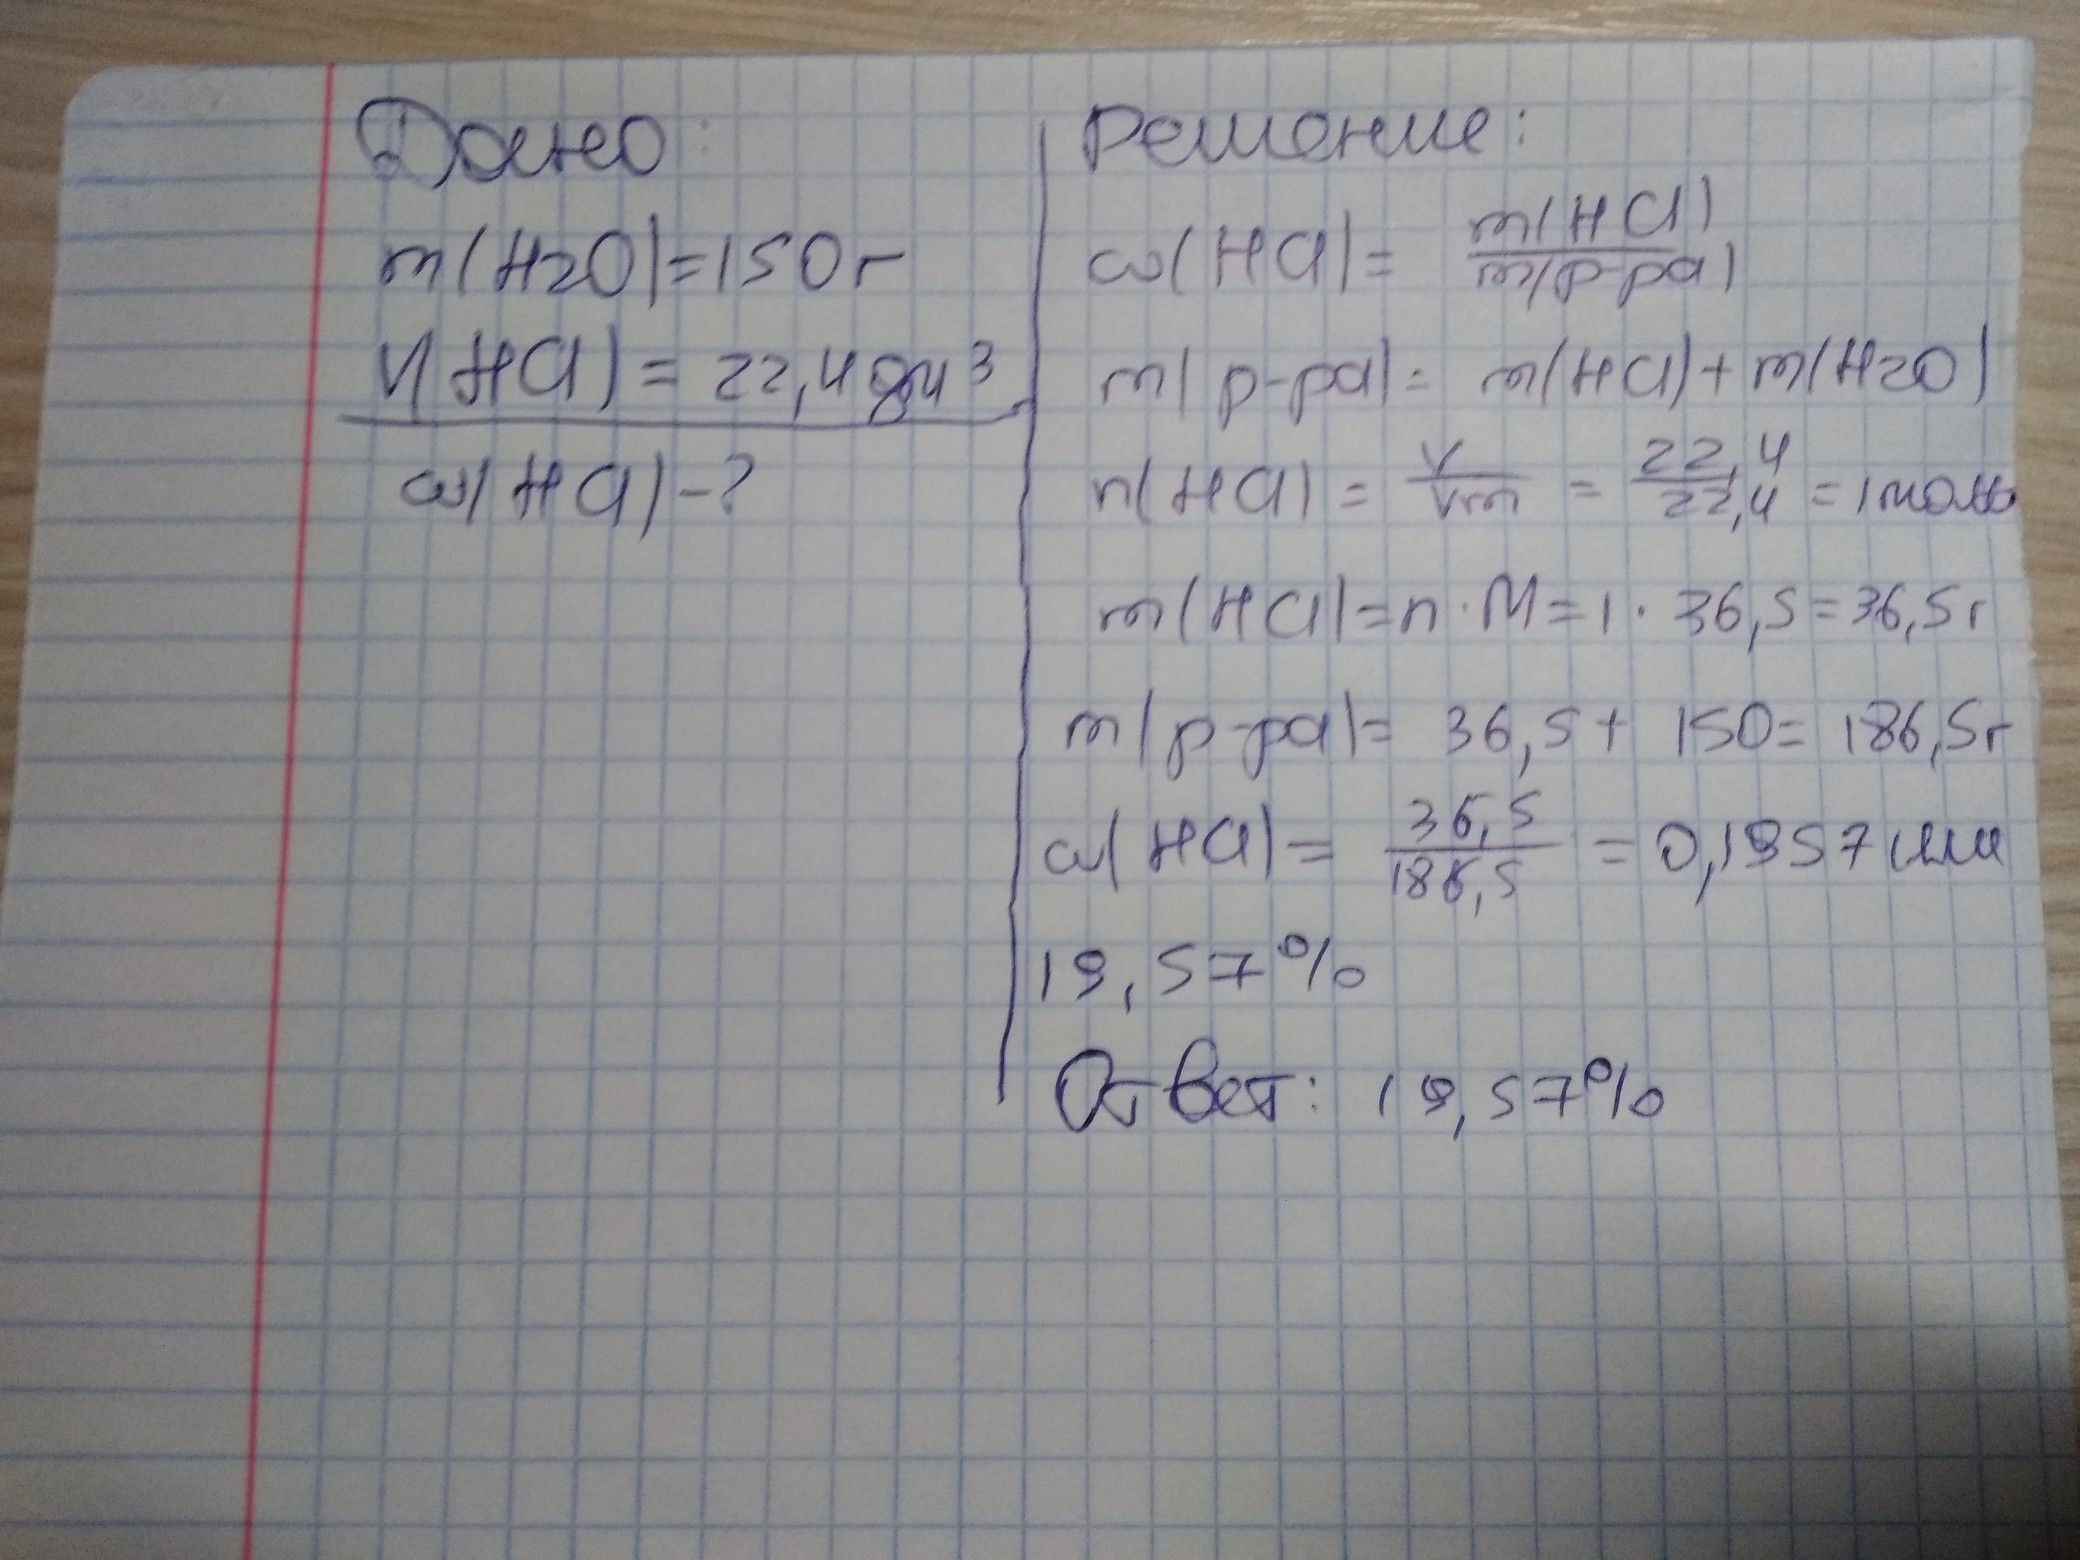 Дано:
m(H2O)=150г
V(HCl)=22,4дм³
ω(HCl)-?
Решение:
ω(HCl)= m(HCl)/m(р-ра)
m(р-ра)= m(HCl)+m(H2O)
n(HCl)= V/Vm = 22,4/22,4 =1моль
m(HCl)=n·M=1·36,5=36,5г
m(р-ра)= 36,5+ 150= 186,5г
ω(HCl)= 36,5/186,5 =0,1957 или
19,57%
Ответ: 19,57%